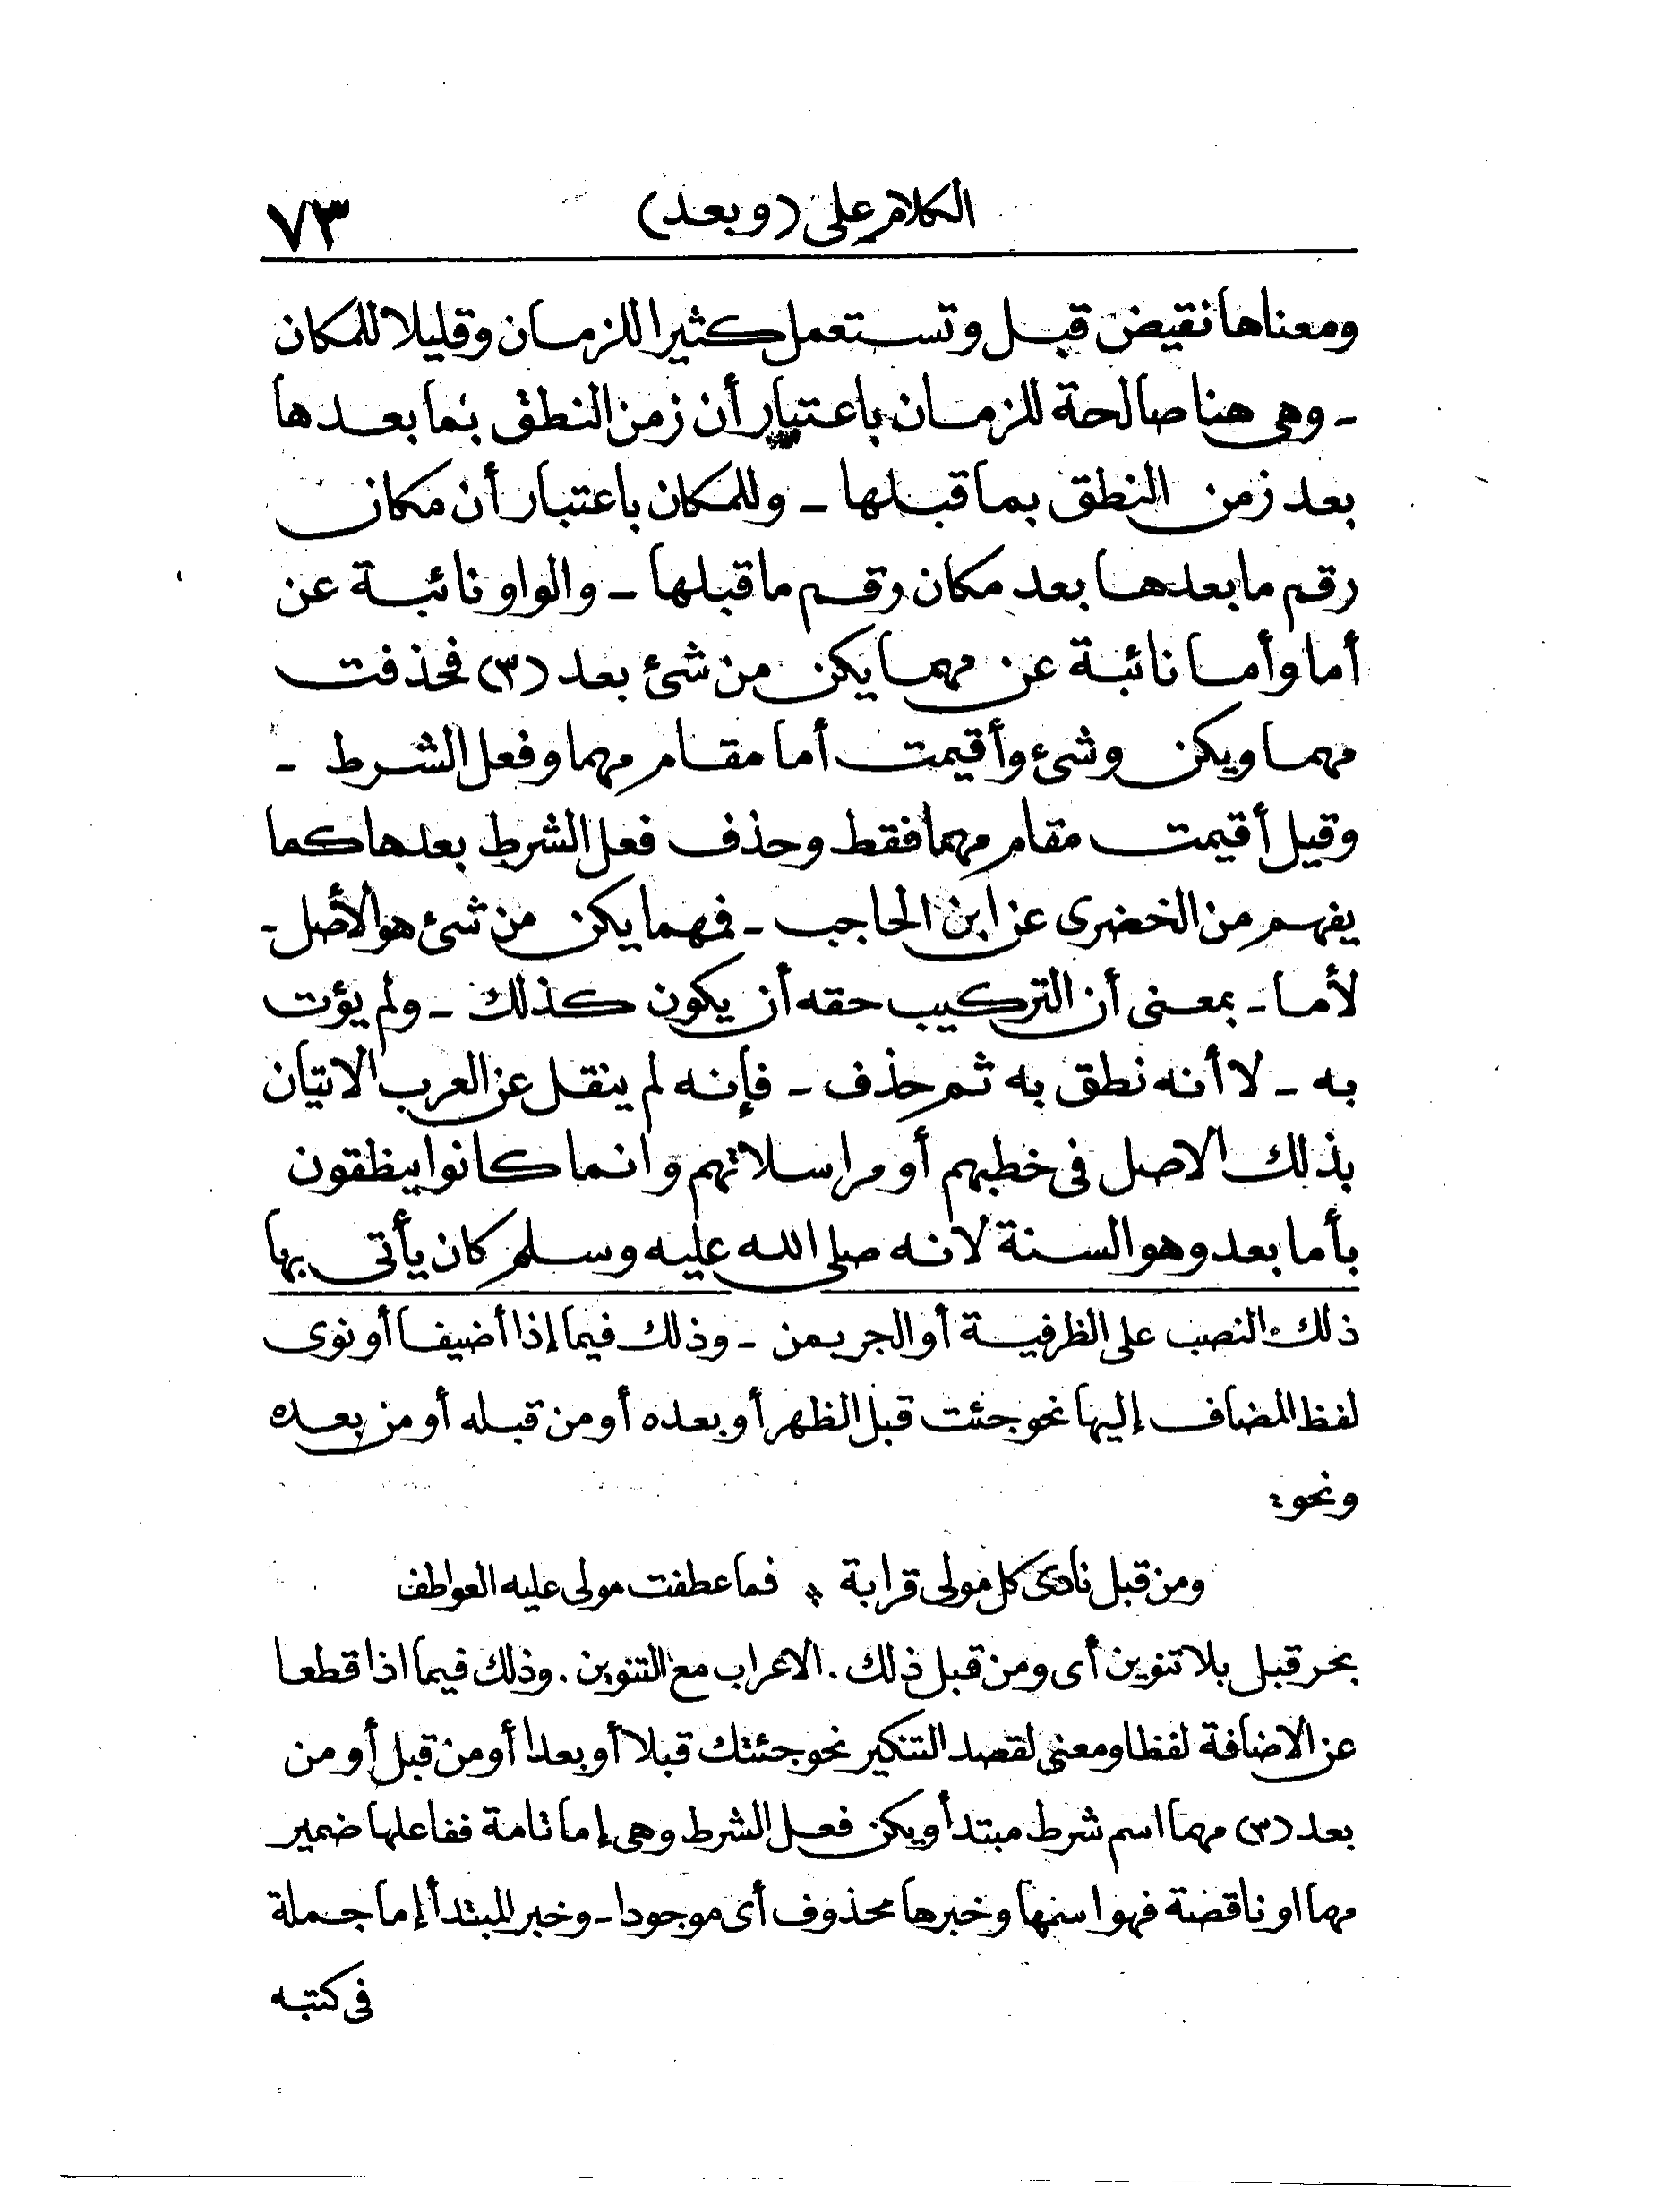 الكلام على (وبعد) ٧٣
ومعناها نقيض قبل وتستعمل كثيرا للزمان وقليلا للمكان
- وهى هنا صالحة للزمان باعتبار أن زمن النطق بما بعدها
بعد زمن النطق بما قبلها - وللمكان باعتبار أن مكان
رقم ما بعدها بعد مكان رقم ما قبلها - والواو نائبة عن
أما وأما نائبة عن مهما يكن من شئ بعد (٣) فحذفت
مهما ويكن وشئ وأقيمت أما مقام مهما وفعل الشرط -
وقيل أقيمت مقام مهما فقط وحذف فعل الشرط بعدها كما
يفهم من الخضرى عن ابن الحاجب - فمهما يكن من شئ هو الأصل -
لأما - بمعنى أن التركيب حقه أن يكون كذلك - ولم يؤت
به - لا أنه نطق به ثم حذف - فإنه لم ينقل عن العرب الاتيان
بذلك الاصل فى خطبهم أو مراسلاتهم وانما كانوا ينطقون
بأما بعد وهو السنة لانه صلى الله عليه وسلم كان يأتى بها
ذلك النصب على الظرفية أو الجر بمن - وذلك فيما إذا أضيفا أو نوى
لفظ المضاف إليها نحو جئت قبل الظهر أو بعده أو من قبله أو من بعده
ونحو:
ومن قبل نادى كل مولى قرابة * فما عطفت مولى عليه العواطف
بجر قبل بلا تنوين أى ومن قبل ذلك . الاعراب مع التنوين . وذلك فيما اذا قطعا
عن الاضافة لفظا ومعنى لقصد التنكير نحو جئتك قبلا أو بعدا أو من قبل أو من
بعد (٣) مهما اسم شرط مبتدأ ويكن فعل الشرط وهى إما تامة ففاعلها ضمير
مهما او ناقصة فهو اسمها وخبرها محذوف أى موجودا - وخبر المبتدأ إما جملة
فى كتبه